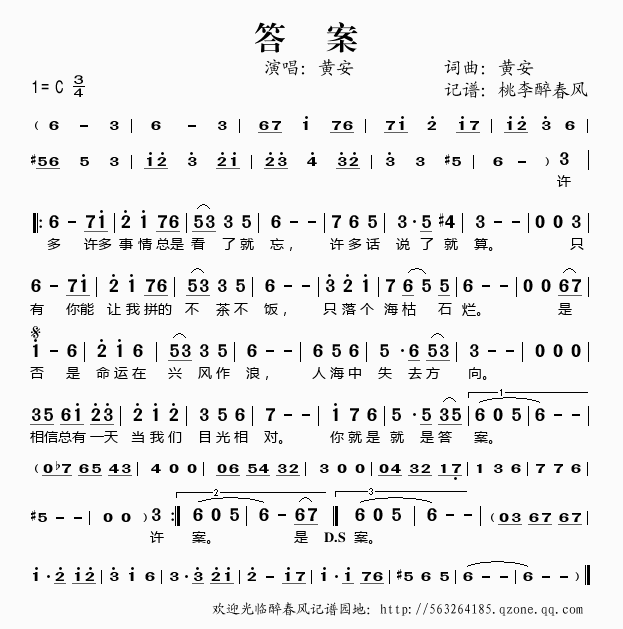 答 案
演唱：黄安 词曲：黄安
1=C 3/4 记谱：桃李醉春风
（ 6 - 3 | 6 - 3 | 67 i 76 | 7i 2 i7 | i2 3 6 |
#56 5 3 | i2 3 2i | 23 4 32 | 3 3 #5 | 6 - ） 3 |
许
‖: 6 - 7i | 2 i 76 | 53 3 5 | 6 - - | 7 6 5 | 3·5 #4 | 3 - - | 0 0 3 |
多 许多事情总是看了就忘， 许多话说了就算。 只
6 - 7i | 2 i 76 | 53 3 5 | 6 - - | 3 2 i | 7 6 5 5 | 6 - - | 0 0 67 |
有 你能让我拼的不茶不饭， 只落个海枯石烂。 是
i - 6 | 2 i 6 | 53 3 5 | 6 - - | 6 5 6 | 5 ·6 53 | 3 - - | 0 0 0 |
否 是命运在兴风作浪， 人海中失去方向。
1
35 6i 23 | 2 i 2 | 3 5 6 | 7 - - | i 7 6 | 5 ·5 35 | 6 0 5 | 6 - - |
相信总有一天当我们目光相对。 你就是就是答案。
（ 0b7 65 43 | 4 0 0 | 06 54 32 | 3 0 0 | 04 32 17 | 1 3 6 | 7 7 6 |
2 3
#5 - - | 0 0 ） 3 :‖ 6 0 5 | 6 - 67 ‖ 6 0 5 | 6 - - |（ 03 67 67 |
许 案。 是 D.S 案。
i·2 i2 | 3 i 6 | 3·2 i2 | 2 - - | i·2 i2 | 3 i 76 | #5 6 5 | 6 - - | 6 - - ）‖
欢迎光临醉春风记谱园地：http://563264185.qzone.qq.com/